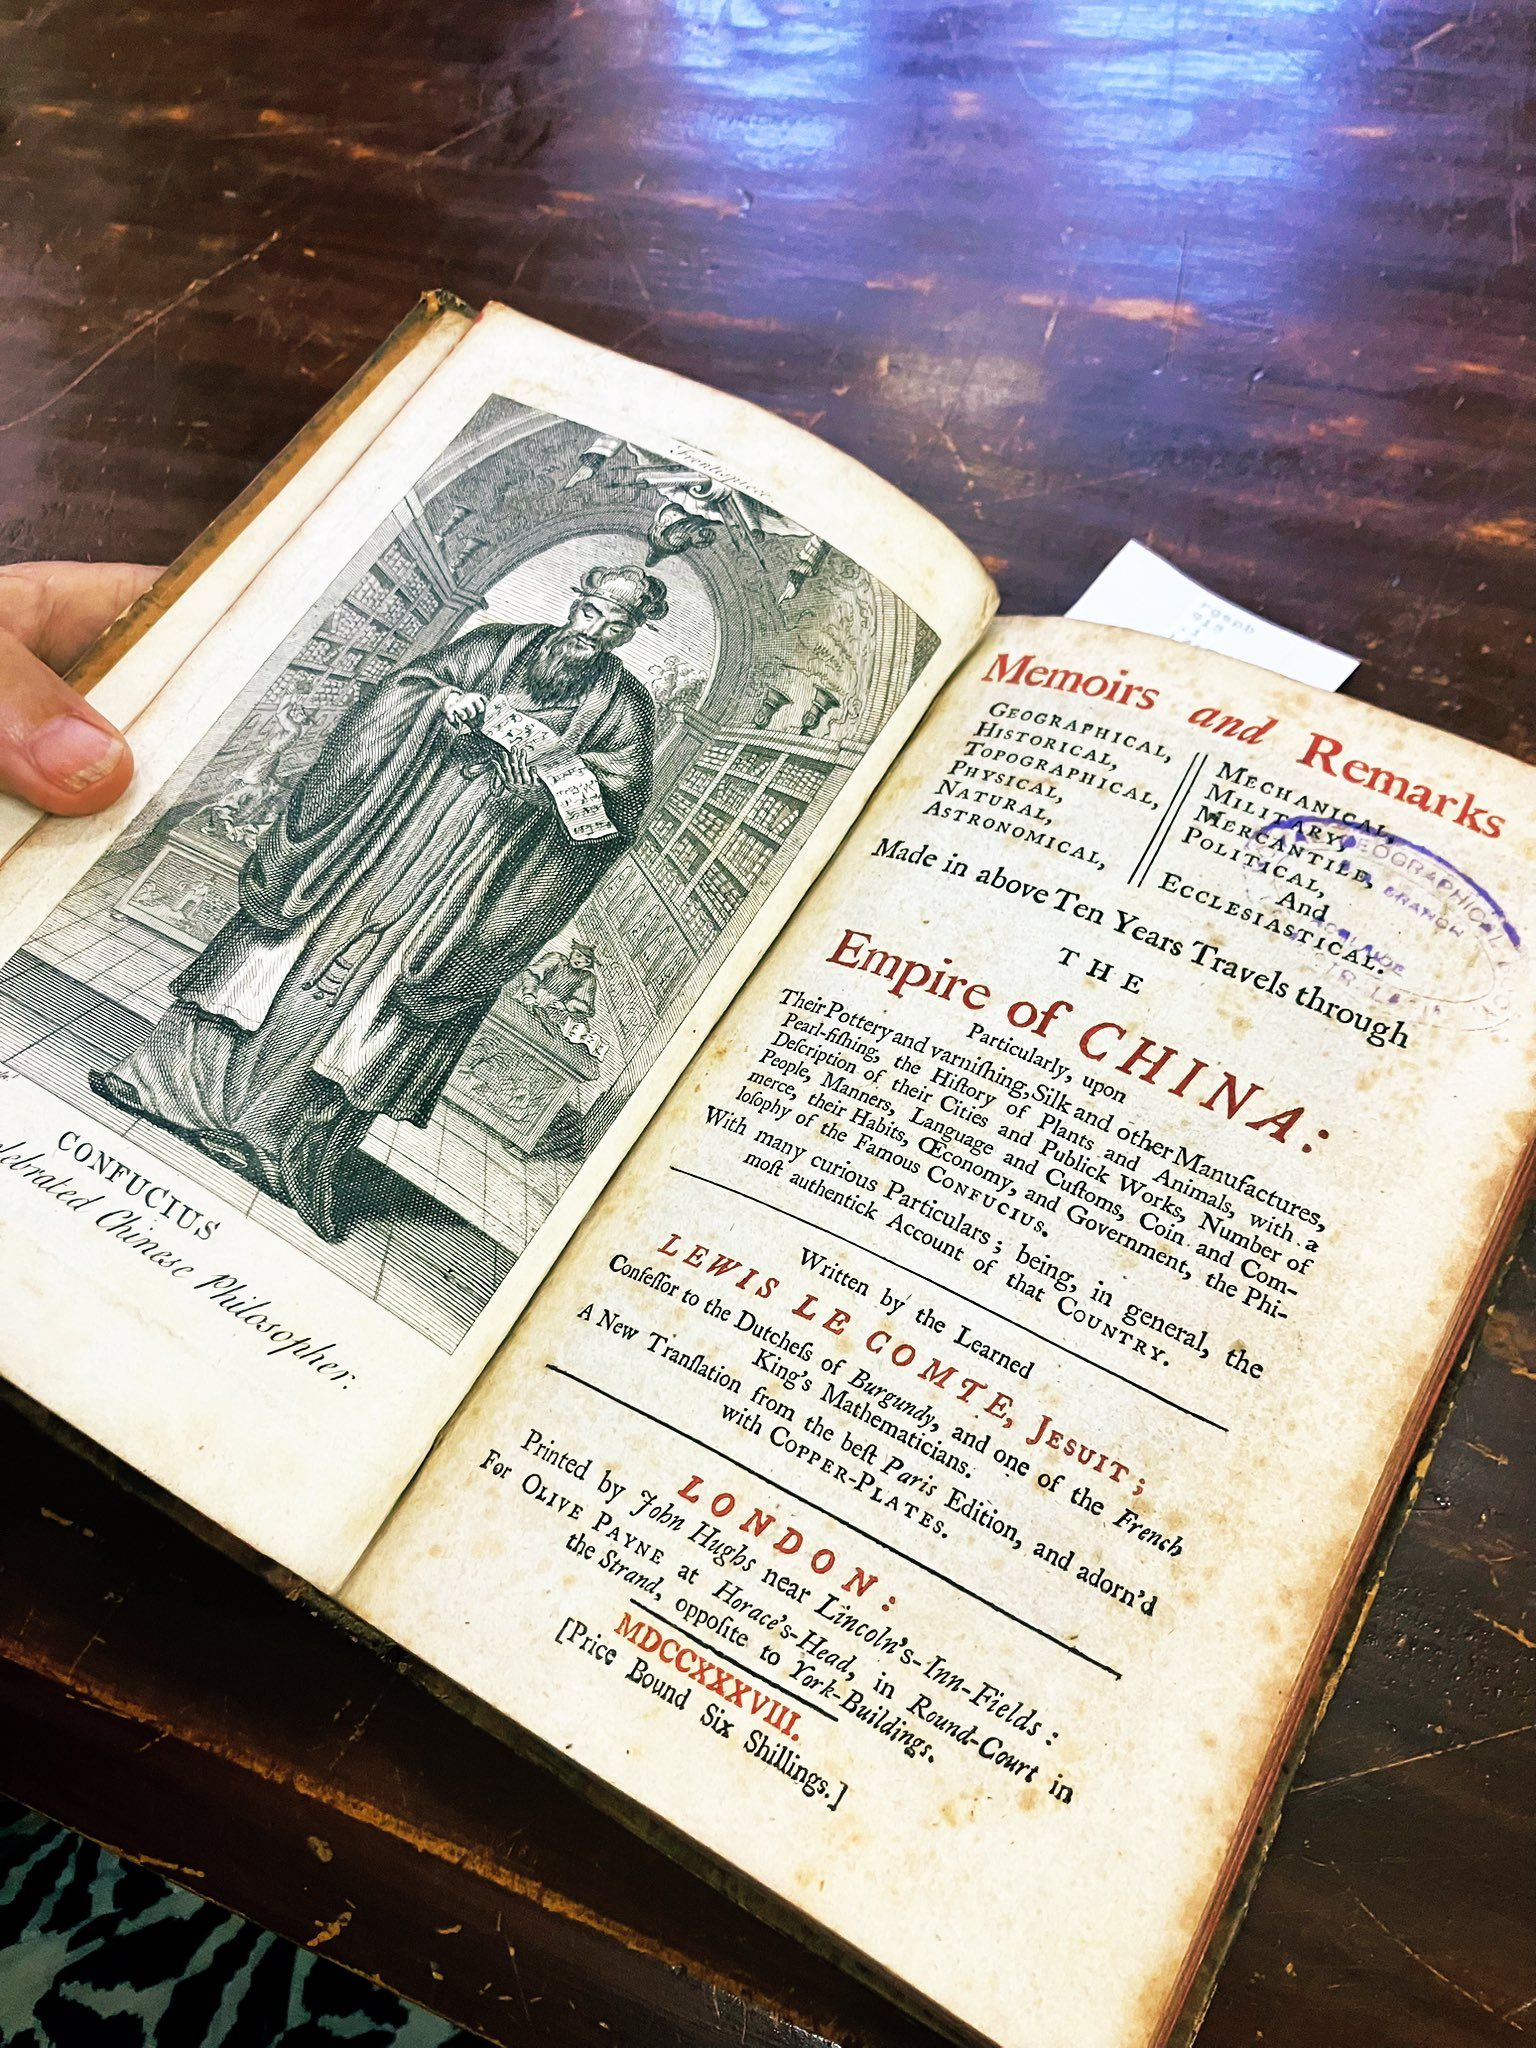 Frontispiece.
CONFUCIUS
Celebrated Chinese Philosopher.
Memoirs and Remarks
GEOGRAPHICAL,
HISTORICAL,
TOPOGRAPHICAL,
PHYSICAL,
NATURAL,
ASTRONOMICAL,
MECHANICAL,
MILITARY,
MERCANTILE,
POLITICAL,
And
ECCLESIASTICAL.
Made in above Ten Years Travels through
THE
Empire of CHINA:
Particularly, upon
Their Pottery and varniſhing, Silk and other Manufactures,
Pearl-fiſhing, the Hiſtory of Plants and Animals, with a
Deſcription of their Cities and Publick Works, Number of
People, Manners, Language and Cuſtoms, Coin and Com-
merce, their Habits, Œconomy, and Government, the Phi-
loſophy of the Famous CONFUCIUS.
With many curious Particulars; being, in general, the
moſt authentick Account of that COUNTRY.
Written by the Learned
LEWIS LE COMTE, JESUIT;
Confeſſor to the Dutcheſs of Burgundy, and one of the French
King's Mathematicians.
A New Tranſlation from the beſt Paris Edition, and adorn'd
with COPPER-PLATES.
LONDON:
Printed by John Hughs near Lincoln's-Inn-Fields:
For OLIVE PAYNE at Horace's-Head, in Round-Court in
the Strand, oppoſite to York-Buildings.
MDCCXXXVIII.
[Price Bound Six Shillings.]
GEOGRAPHICAL
BRANCH
rgspb
915